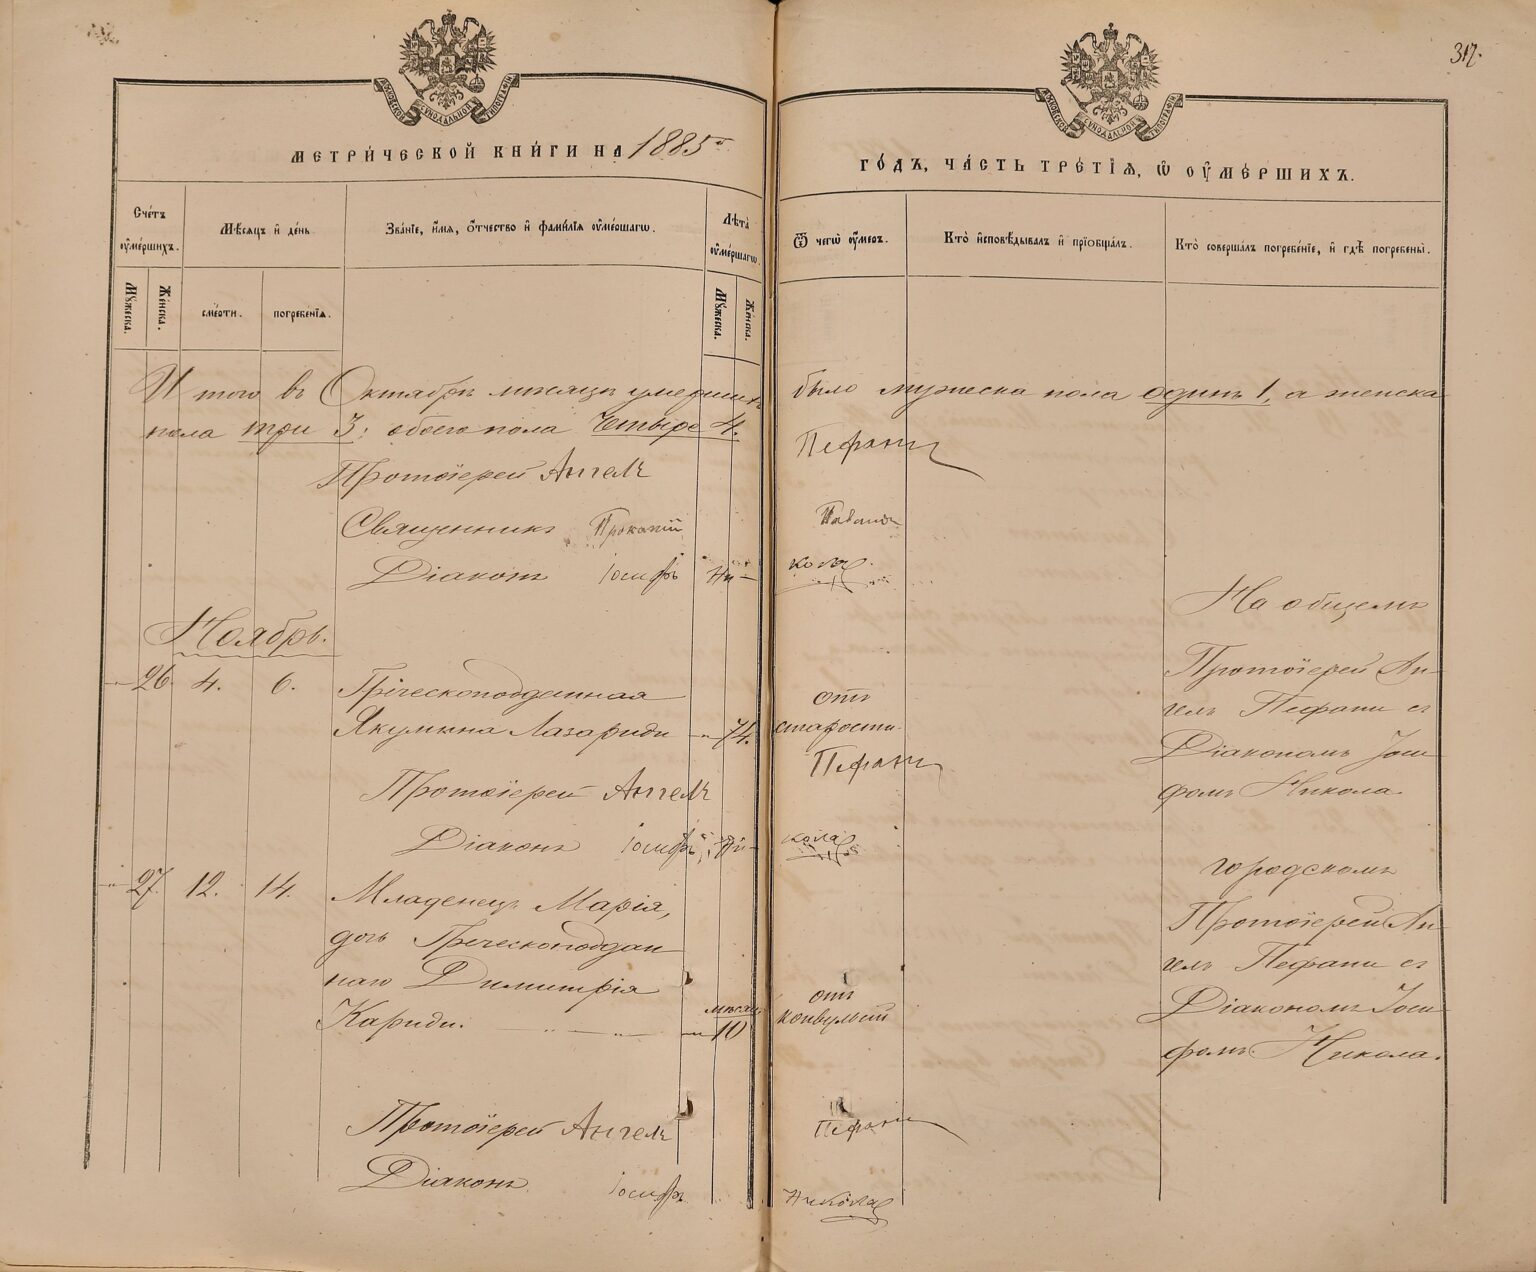 317.
МОСКОВСКОЙ СѴНОДАЛЬНОЙ ТИПОГРАФІИ
МОСКОВСКОЙ СѴНОДАЛЬНОЙ ТИПОГРАФІИ
МЕТРИ́ЧЕСКОЙ КНИ́ГИ НА 1885й
ГО́ДЪ, ЧА́СТЬ ТРЕ́ТІЯ, Ѡ҆ ОУ҆МЕ́РШИХЪ.
Сче́тъ оу҆ме́ршихъ.
Мѣ́сяцъ и҆ де́нь.
Зва́нїе, и҆́мя, ѻ҆́тчество и҆ фами́лїя оу҆ме́ршагѡ.
Лѣ́та оу҆ме́ршагѡ.
Ѿ чегѡ̀ оу҆́меръ.
Кто̀ и҆сповѣ́дывалъ и҆ прїобща́лъ.
Кто̀ соверша́лъ погребе́нїе, и҆ гдѣ̀ погребены̀.
Мꙋ́жеска.
Же́нска.
сме́рти.
погребе́нїя.
Мꙋ́жеска.
Же́нска.
И того въ Октябрѣ мѣсяцѣ умершихъ было мужеска пола одинъ 1, а женска
пола три 3; обоего пола Четыре 4.
Протоіерей Ангелъ Пефани
Священникъ Прокопій
Діаконъ Іосифъ Николаᲂ
Ноябрь.
На общемъ
26. 4. 6. Грѣческоподданная
Якумина Лазариди 74. отъ старости.
Протоіерей Ан-
гелъ Пефани съ
Діакономъ Іоси-
фомъ Никола
Протоіерей Ангелъ Пефани
Діаконъ Іосифъ Никола
городскомъ
27. 12. 14. Младенецъ Марія,
дочь Греческоподдан-
наго Димитрія
Кариди. мѣсяц. 10 отъ конвульсій
Протоіерей Ан-
гелъ Пефани съ
Діакономъ Іоси-
фомъ Никола.
Протоіерей Ангелъ Пефани
Діаконъ Іосифъ Никола